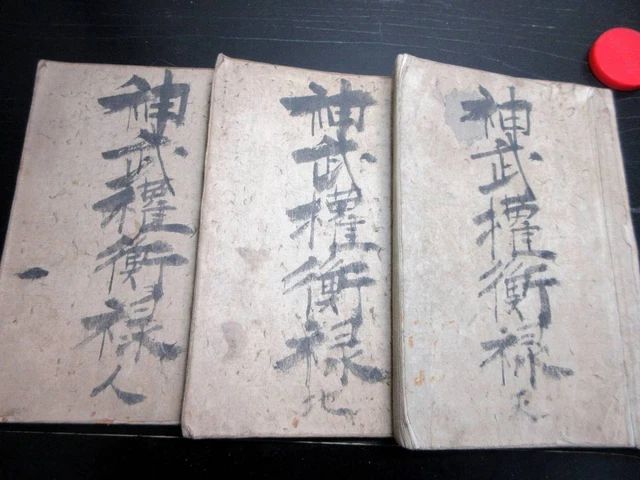 神武權衡禄天
神武權衡禄地
神武權衡禄人